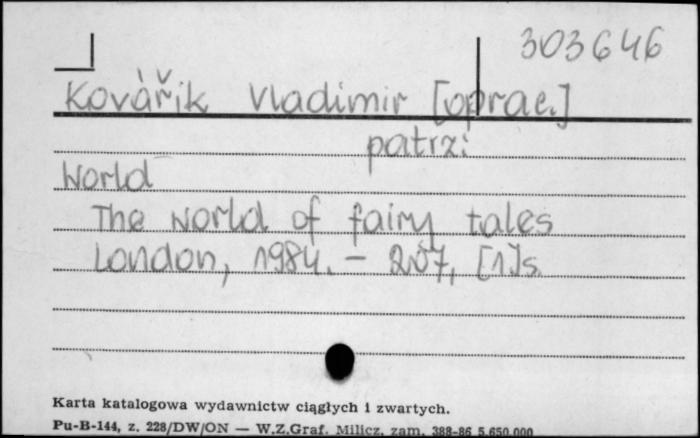 303646
Kovářik Vladimir [oprac.]
patrz:
World
The world of fairy tales
London, 1984. — 207, [1]s.
Karta katalogowa wydawnictw ciągłych i zwartych.
Pu-B-144, z. 228/DW/ON — W.Z.Graf. Milicz, zam. 388-86 5.650.000